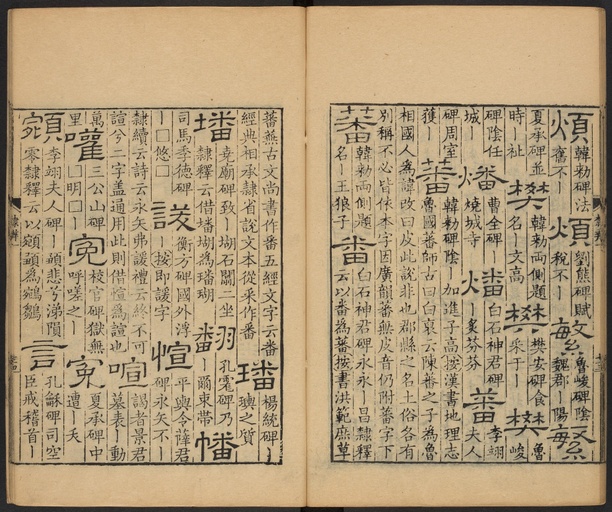 煩 韓勑碑法舊不｜ 煩 劉熊碑賦稅不｜ 繁 魯峻碑陰魏郡｜陽 繁
夏承碑並時｜祉 樊 韓勑兩側題名｜文高 樊 樊安碑食采于｜ 樊 魯峻
碑陰任城｜ 燔 曹全碑｜燒城寺 燔 白石神君碑｜炙芬芬 蕃 李翊夫人
碑周室獲｜ 蕃 韓勑碑陰｜加進子高按漢書地理志魯國蕃師古曰白裒云陳蕃之子為魯
相國人為諱改曰皮此說非也郡縣之名土俗各有別稱不必皆依本字因廣韻蕃無皮音仍附蕃字下
蕃 韓勑兩側題名｜王狼子 番 白石神君碑永永｜昌隸釋云以番為蕃按書洪範庶草
蕃蕪古文尚書作番五經文字云番經典相承隸省說文本從釆作番 璠 楊統碑｜璵之質
墦 堯廟碑致｜堋石闕二坐隸釋云借墦堋為璠瑚 孔宙碑乃｜爾束帶 幡
司馬季德碑｜□悠□ 諼 衡方碑國外浮｜按即諼字 愃 平輿令薛君碑永矢不｜
隸續云詩云永矢弗諼禮云終不可諠兮二字蓋通用此則借愃為諠也 喧 謁者景君墓表｜動
萬里 嚾 三公山碑□明□｜ 冤 校官碑獄無呼嗟之｜ 冤 夏承碑中遭｜夭
宛 頵 李翊夫人碑｜顧悲兮涕隕零隸釋云以頵顧為鵷鶵 言 孔龢碑司空臣戒稽首｜